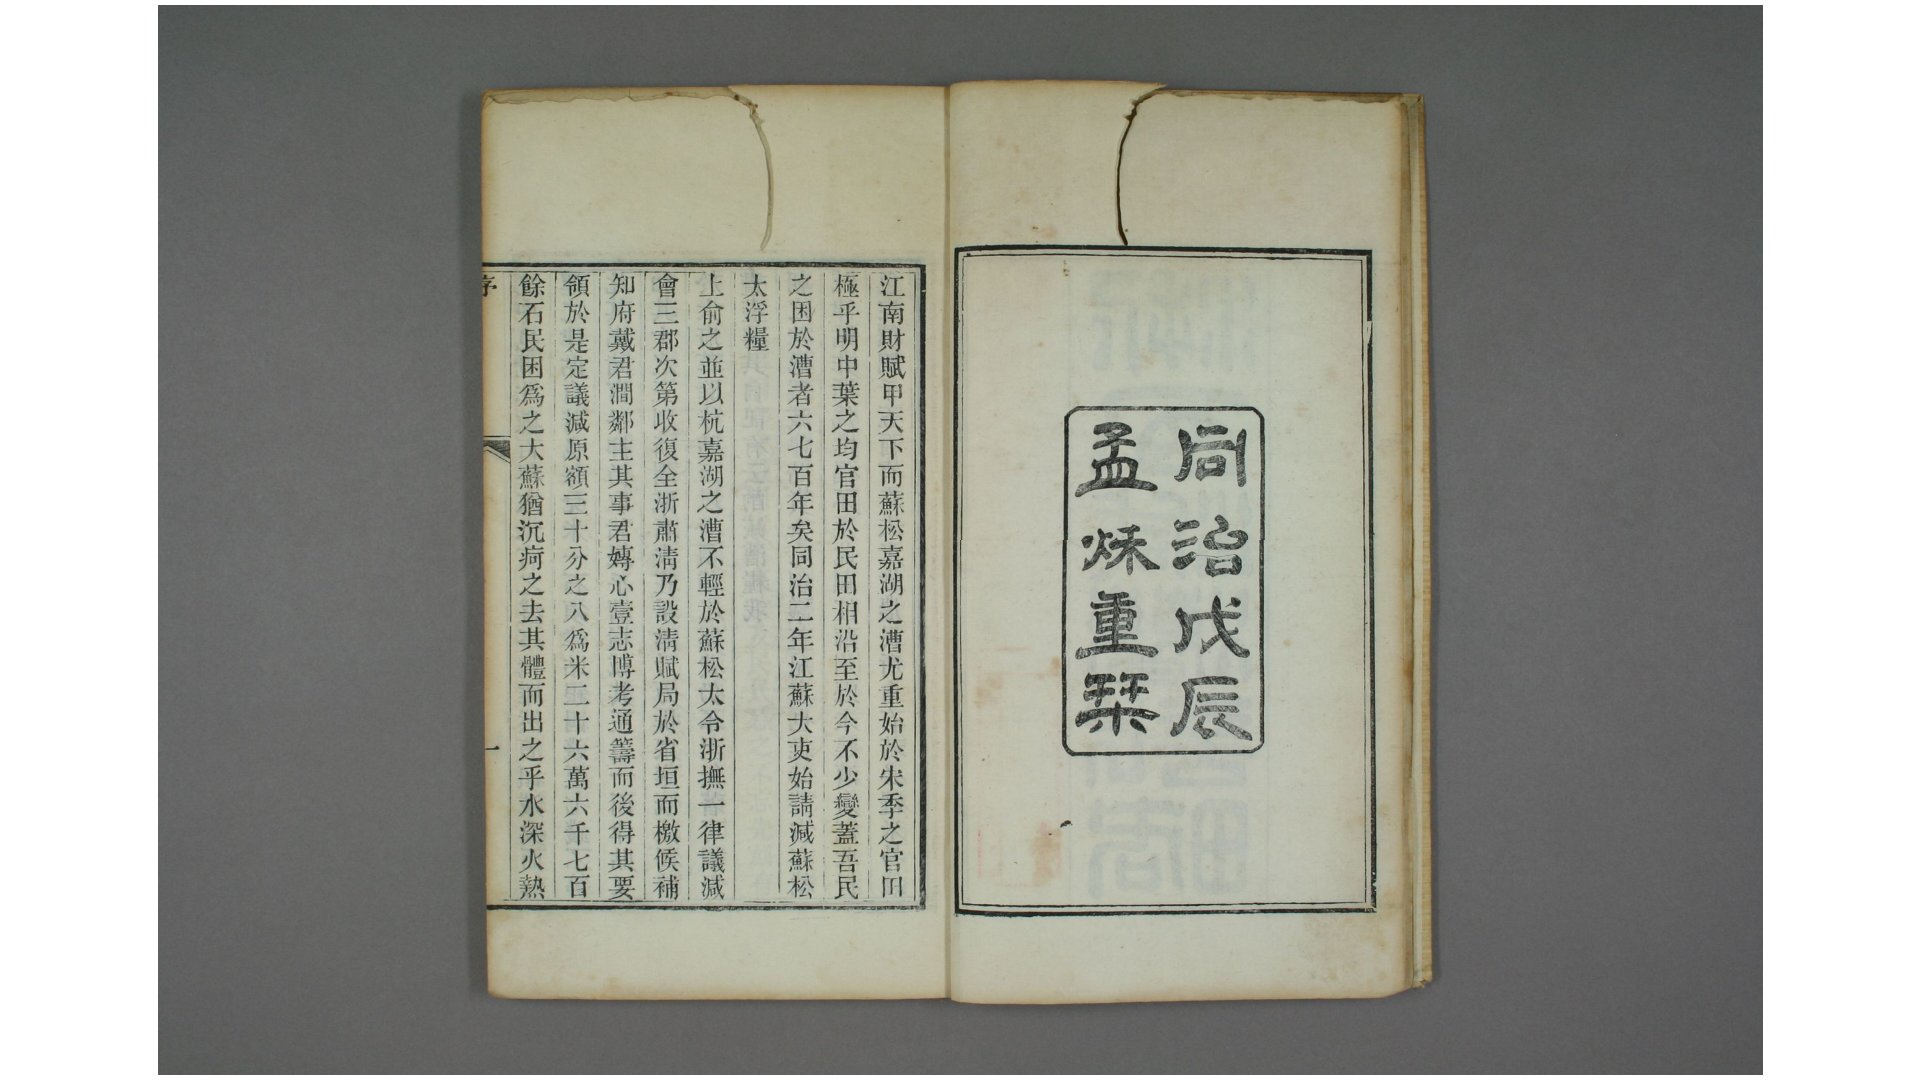 同治戊辰
孟秌重栞
江南財賦甲天下而蘇松嘉湖之漕尤重始於宋季之官田
極乎明中葉之均官田於民田相沿至於今不少變蓋吾民
之困於漕者六七百年矣同治二年江蘇大吏始請減蘇松
太浮糧
上俞之並以杭嘉湖之漕不輕於蘇松太令浙撫一律議減
會三郡次第收復全浙肅清乃設清賦局於省垣而檄候補
知府戴君澗鄰主其事君嫥心壹志博考通籌而後得其要
領於是定議減原額三十分之八爲米二十六萬六千七百
餘石民困爲之大蘇猶沉疴之去其體而出之乎水深火熱
序
一